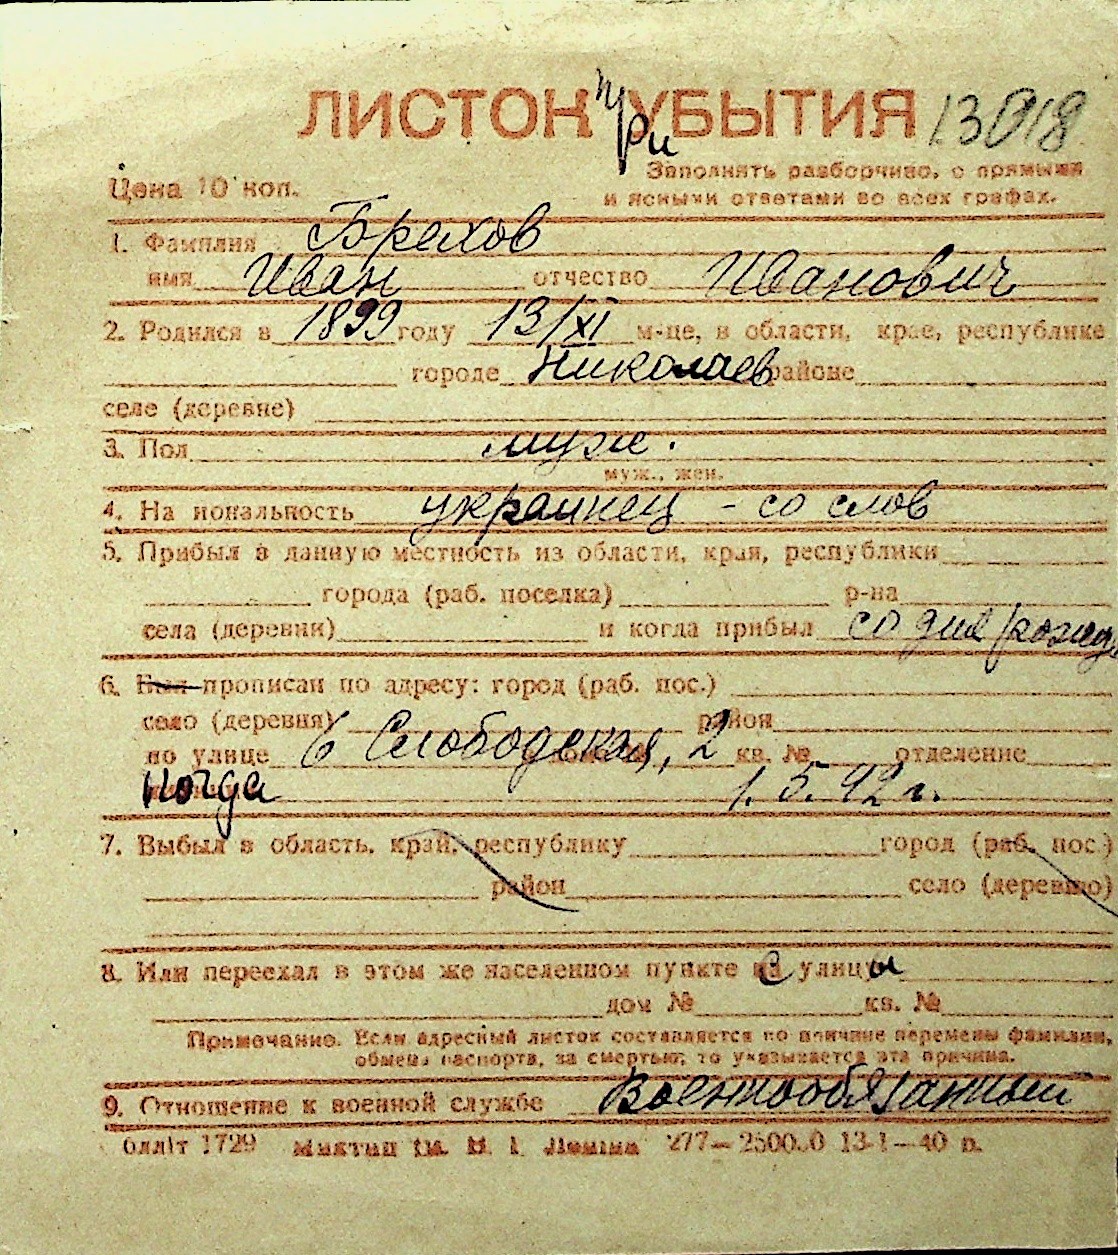 ЛИСТОК при УБЫТИЯ 13018
Заполнять разборчиво, с прямыми
Цена 10 коп.
и ясными ответами во всех графах.
1. Фамилия Брехов
имя Иван отчество Иванович
2. Родился в 1899 году 13/XI м-це, в области, крае, республике
городе Николаев районе
селе (деревне)
3. Пол муж.
муж., жен.
4. Национальность украинец - со слов
5. Прибыл в данную местность из области, края, республики
города (раб. поселка) р-на
села (деревни) и когда прибыл со дня рожд
6. Был прописан по адресу: город (раб. пос.)
село (деревня) район
по улице 6 Слободская, 2 кв. № отделение
когда 1. 5. 42 г.
7. Выбыл в область, край, республику город (раб. пос.)
район село (деревню)
8. Или переехал в этом же населенном пункте с улицы
дом № кв. №
Примечание. Если адресный листок составляется по причине перемены фамилии,
обмена паспорта, за смертью, то указывается эта причина.
9. Отношение к военной службе Военнообязанный
1729 277— 13-1—40 р.